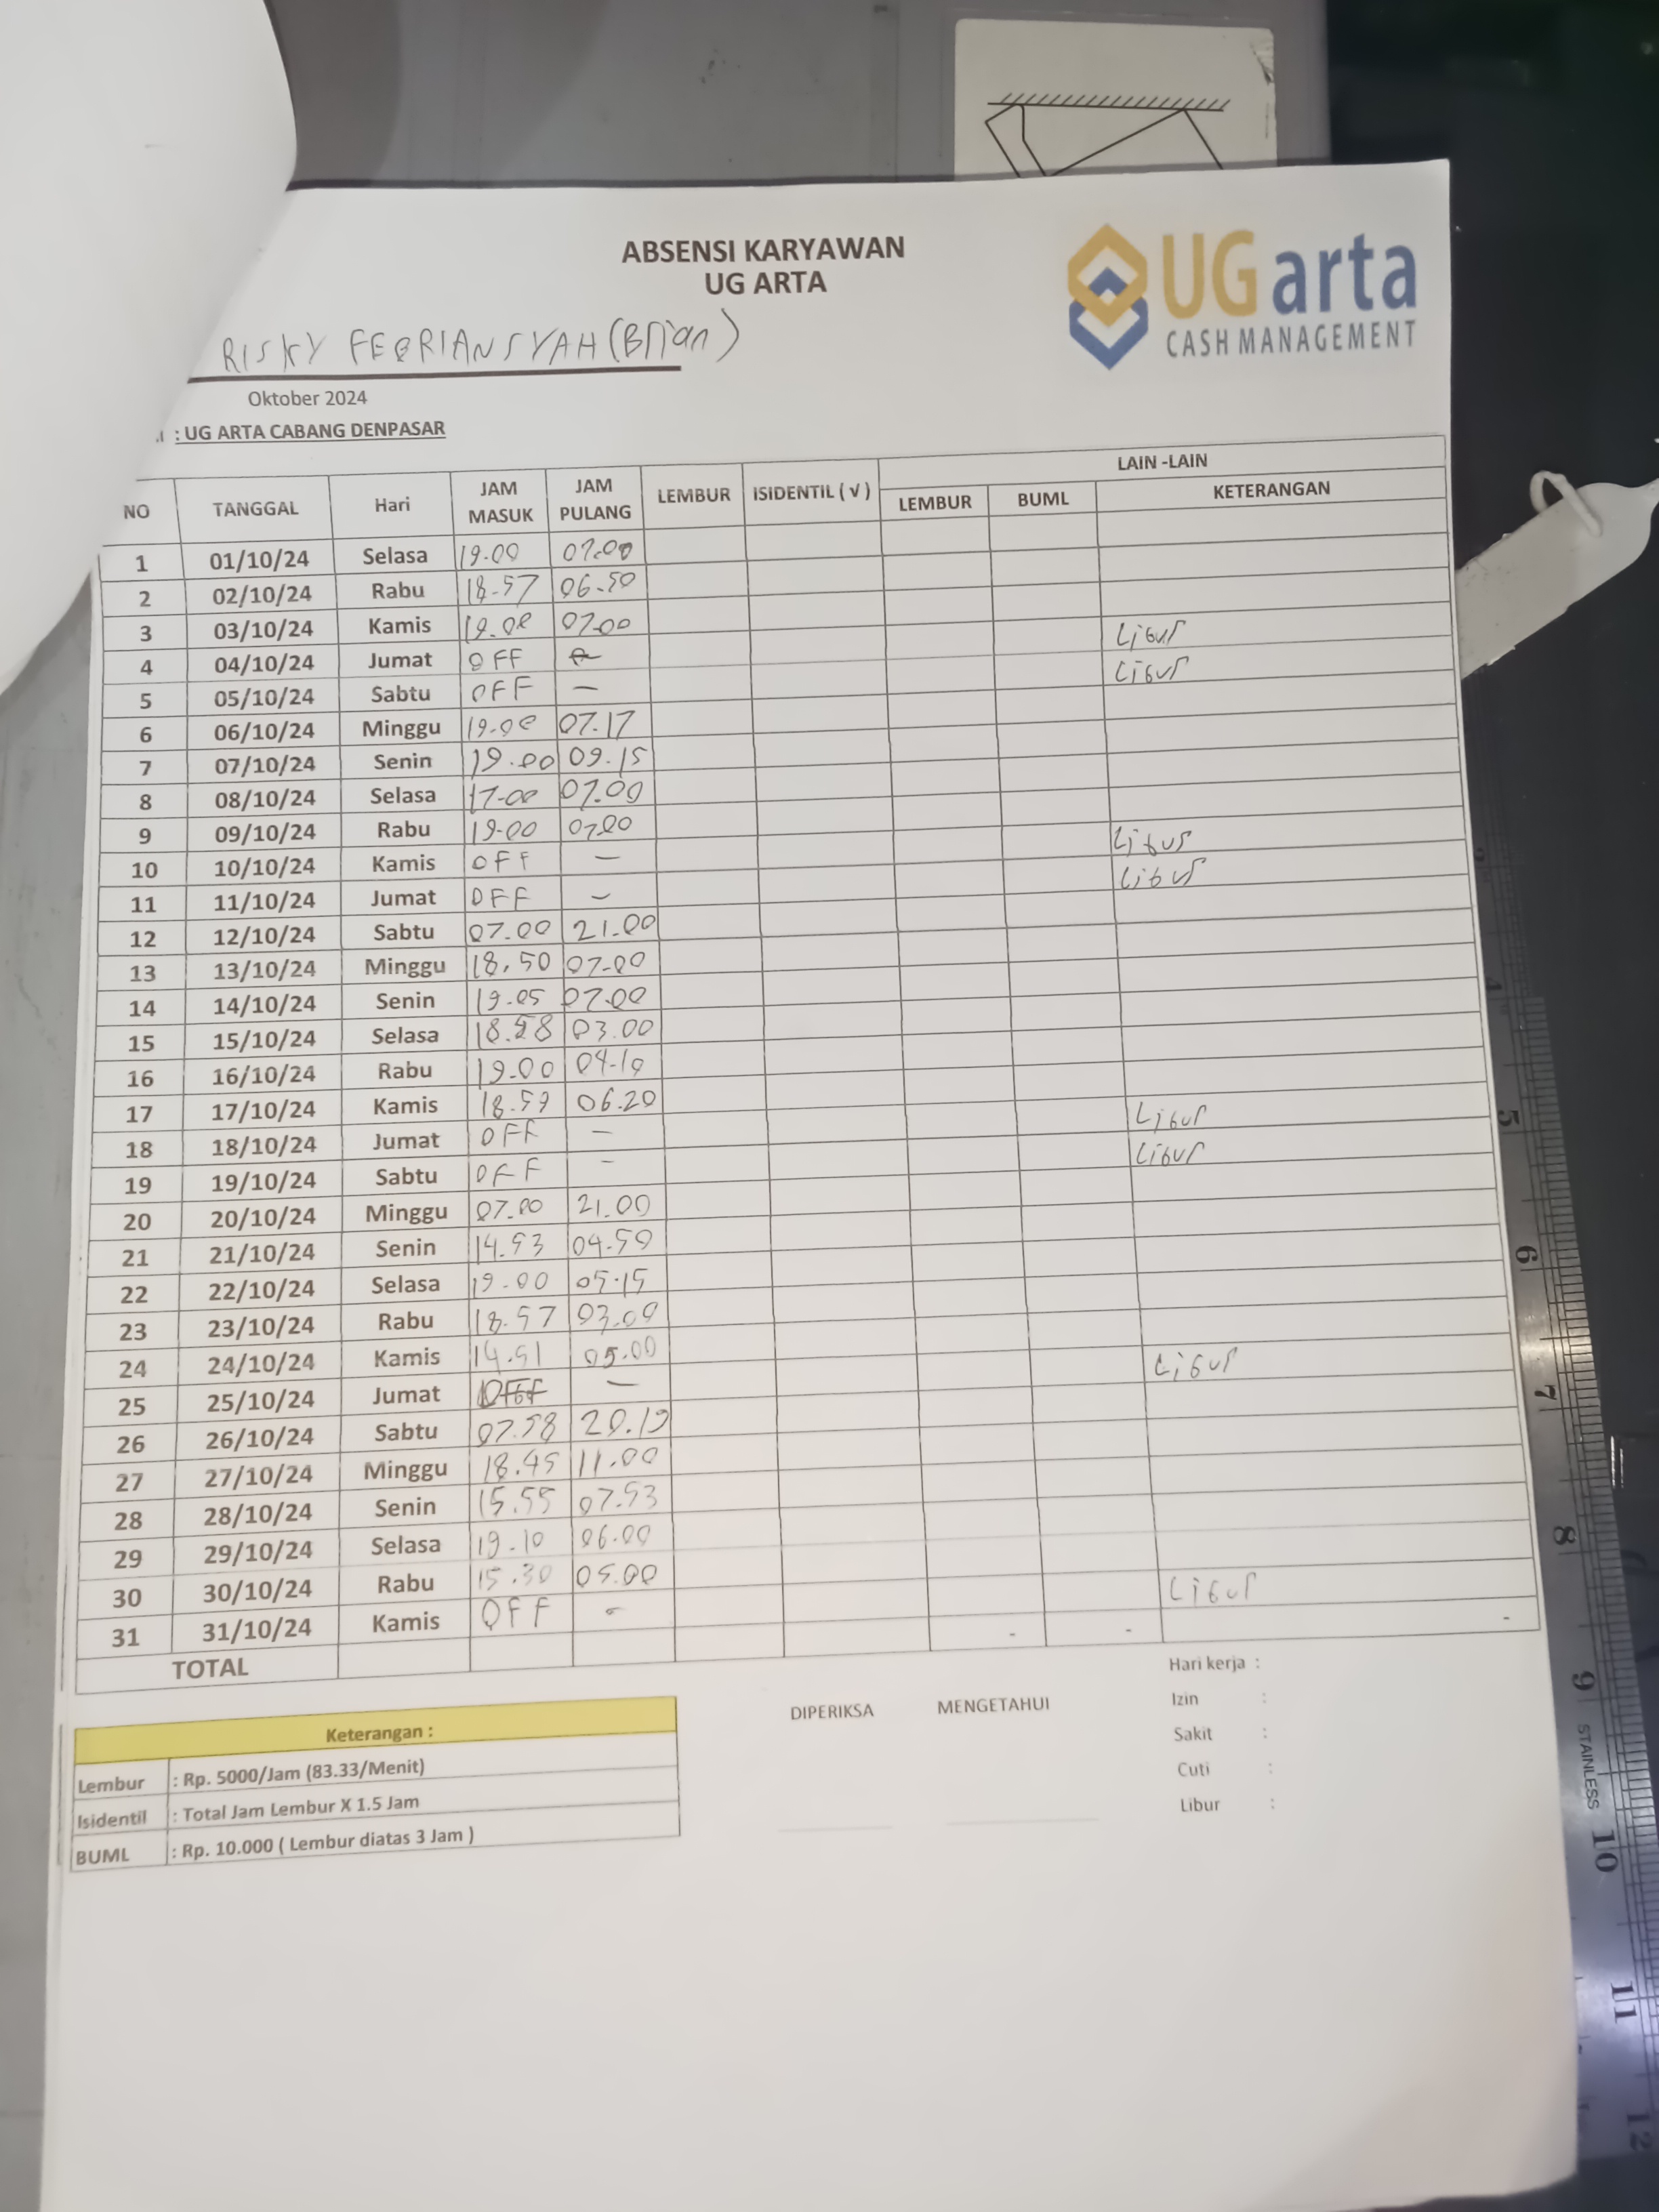 ABSENSI KARYAWAN
UG ARTA
UGarta
CASH MANAGEMENT
RISKY FEBRIANSYAH (Brian)
Oktober 2024
: UG ARTA CABANG DENPASAR
NO TANGGAL Hari JAM MASUK JAM PULANG LEMBUR ISIDENTIL ( √ ) LAIN -LAIN
LEMBUR BUML KETERANGAN
1 01/10/24 Selasa 19.00 07.00
2 02/10/24 Rabu 18.57 06.50
3 03/10/24 Kamis 19.00 07.00
4 04/10/24 Jumat OFF - Libur
5 05/10/24 Sabtu OFF - Libur
6 06/10/24 Minggu 19.00 07.17
7 07/10/24 Senin 19.00 09.15
8 08/10/24 Selasa 17.00 07.00
9 09/10/24 Rabu 19.00 07.00
10 10/10/24 Kamis OFF - Libur
11 11/10/24 Jumat OFF - Libur
12 12/10/24 Sabtu 07.00 21.00
13 13/10/24 Minggu 18.50 07.00
14 14/10/24 Senin 19.05 07.00
15 15/10/24 Selasa 18.58 03.00
16 16/10/24 Rabu 19.00 04.10
17 17/10/24 Kamis 18.59 06.20
18 18/10/24 Jumat OFF - Libur
19 19/10/24 Sabtu OFF - Libur
20 20/10/24 Minggu 07.00 21.00
21 21/10/24 Senin 14.53 04.50
22 22/10/24 Selasa 19.00 05.15
23 23/10/24 Rabu 18.57 03.00
24 24/10/24 Kamis 14.51 05.00
25 25/10/24 Jumat OFF - Libur
26 26/10/24 Sabtu 07.58 20.19
27 27/10/24 Minggu 18.45 11.00
28 28/10/24 Senin 15.55 07.53
29 29/10/24 Selasa 19.10 06.00
30 30/10/24 Rabu 15.30 05.00
31 31/10/24 Kamis OFF - Libur
TOTAL - - -
Keterangan :
Lembur : Rp. 5000/Jam (83.33/Menit)
Isidentil : Total Jam Lembur X 1.5 Jam
BUML : Rp. 10.000 ( Lembur diatas 3 Jam )
DIPERIKSA MENGETAHUI
Hari kerja :
Izin :
Sakit :
Cuti :
Libur :
5
6
7
8
9
STAINLESS
10
11
12